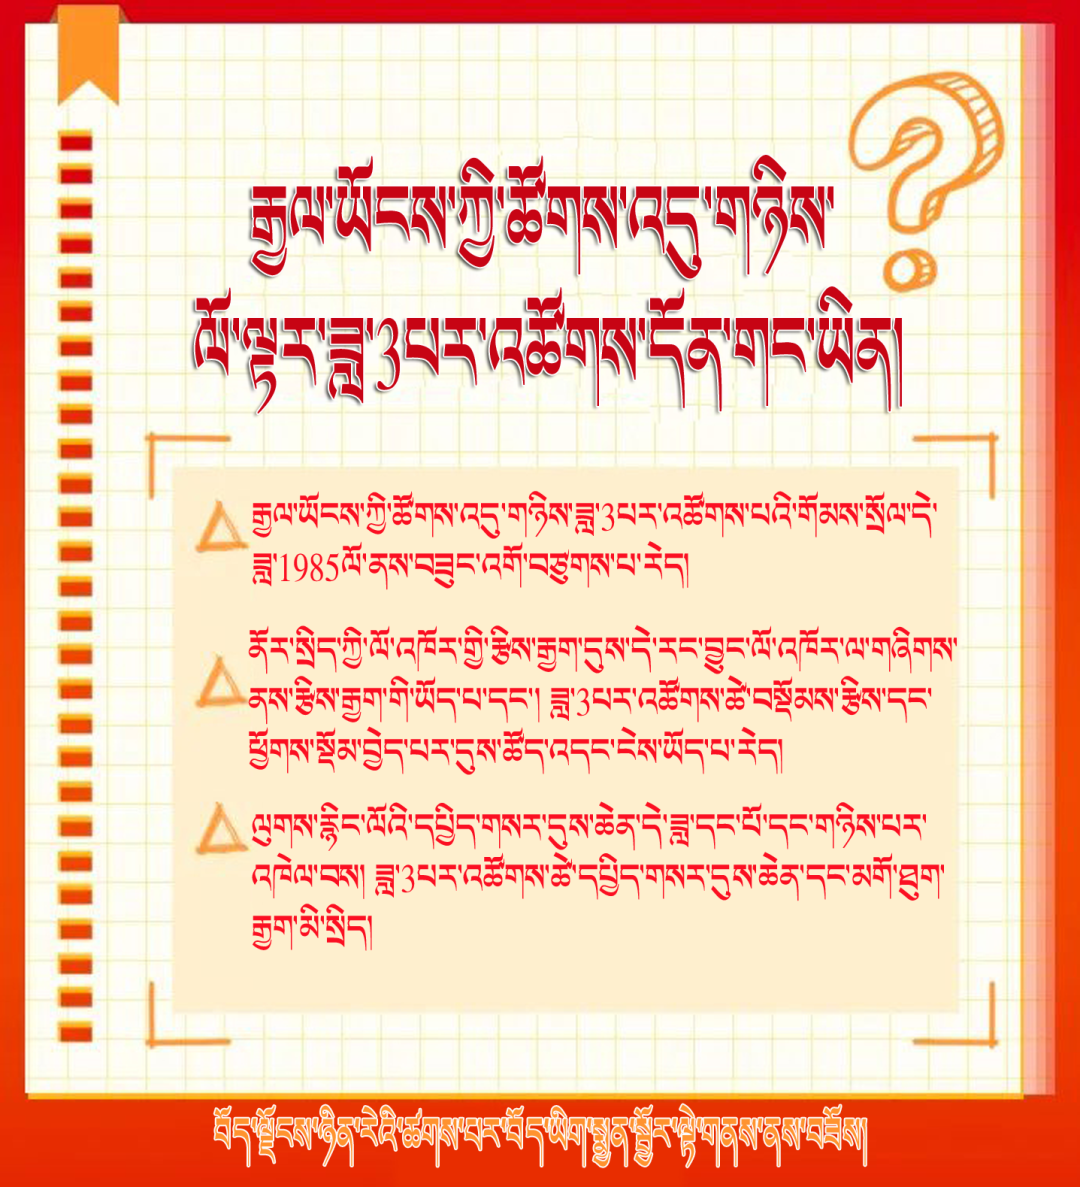 རྒྱལ་ཡོངས་ཀྱི་ཚོགས་འདུ་གཉིས་
ལོ་ལྟར་ཟླ་3པར་འཚོགས་དོན་གང་ཡིན།
རྒྱལ་ཡོངས་ཀྱི་ཚོགས་འདུ་གཉིས་ཟླ་3པར་འཚོགས་པའི་གོམས་སྲོལ་དེ་
ཟླ་1985ལོ་ནས་བཟུང་འགོ་བཙུགས་པ་རེད།
ནོར་སྲིད་ཀྱི་ལོ་འཁོར་གྱི་རྩིས་རྒྱག་དུས་དེ་རང་བྱུང་ལོ་འཁོར་ལ་གཞིགས་
ནས་རྩིས་རྒྱག་གི་ཡོད་པ་དང་། ཟླ་3པར་འཚོགས་ཚེ་བསྡོམས་རྩིས་དང་
ཕྱོགས་སྡོམ་བྱེད་པར་དུས་ཚོད་འདང་ངེས་ཡོད་པ་རེད།
ལུགས་རྙིང་ལོའི་དཔྱིད་གསར་དུས་ཆེན་དེ་ཟླ་དང་པོ་དང་གཉིས་པར་
འཁེལ་བས། ཟླ་3པར་འཚོགས་ཚེ་དཔྱིད་གསར་དུས་ཆེན་དང་མགོ་ཐུག་
རྒྱག་མི་སྲིད།
བོད་ལྗོངས་ཉིན་རེའི་ཚགས་པར་བོད་ཡིག་སྨྱན་སྦྱོར་ལྟེ་གནས་ནས་བཟོས།